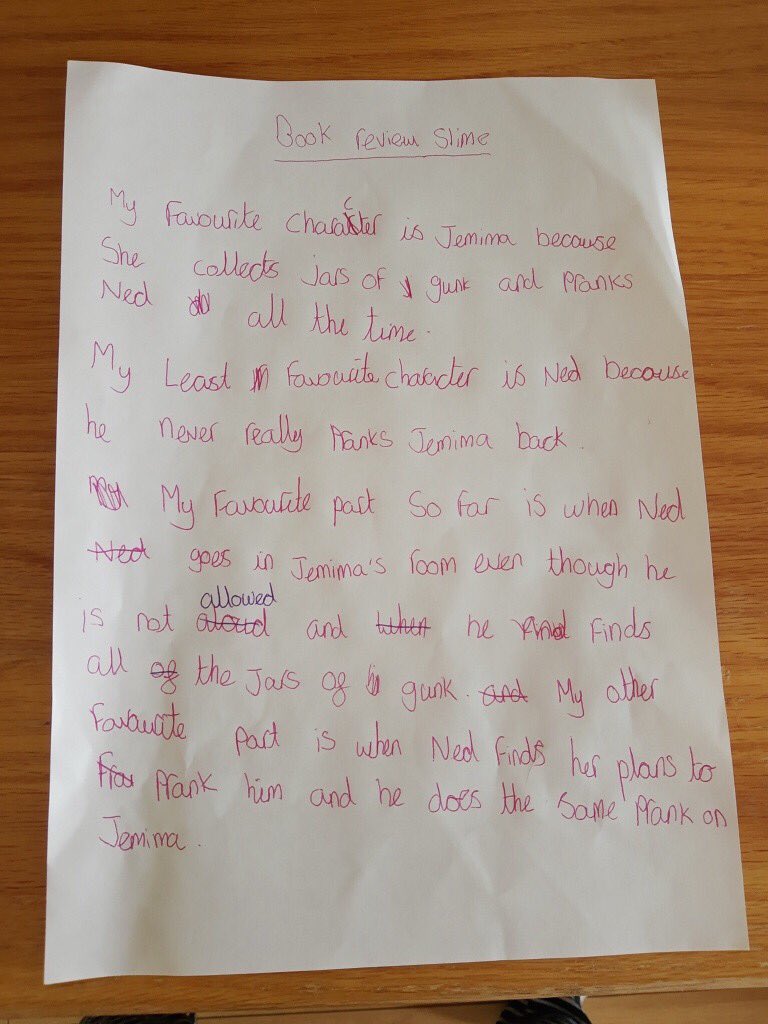 Book review Slime
My Favourite character is Jemima because
She collects Jars of gunk and Pranks
Ned all the time.
My Least Favourite character is Ned because
he never really Pranks Jemima back.
My Favourite part So far is when Ned
Ned goes in Jemima's room even though he
allowed
is not aloud and when he Finds
all of the Jars of gunk. and My other
Favourite part is when Ned Finds her plans to
Prank him and he does the Same Prank on
Jemima.